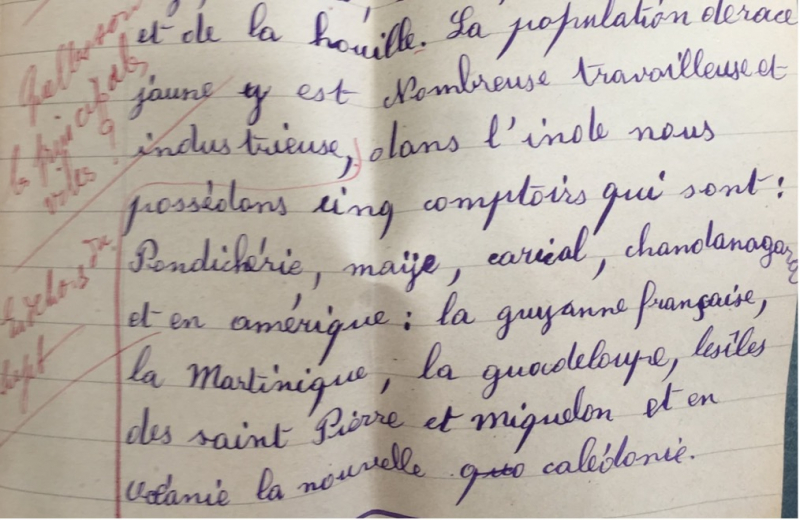 et de la houille. La population de race
jaune y est Nombreuse travailleuse et
industrieuse, dans l'inde nous
possédons cinq comptoirs qui sont :
Pondichérie, maïje, carical, chandanagar
et en amérique : la guyanne française,
la Martinique, la guadeloupe, les îles
des saint Pierre et miquelon et en
océanie la nouvelle calédonie.
Quelles sont
les principales
villes ?